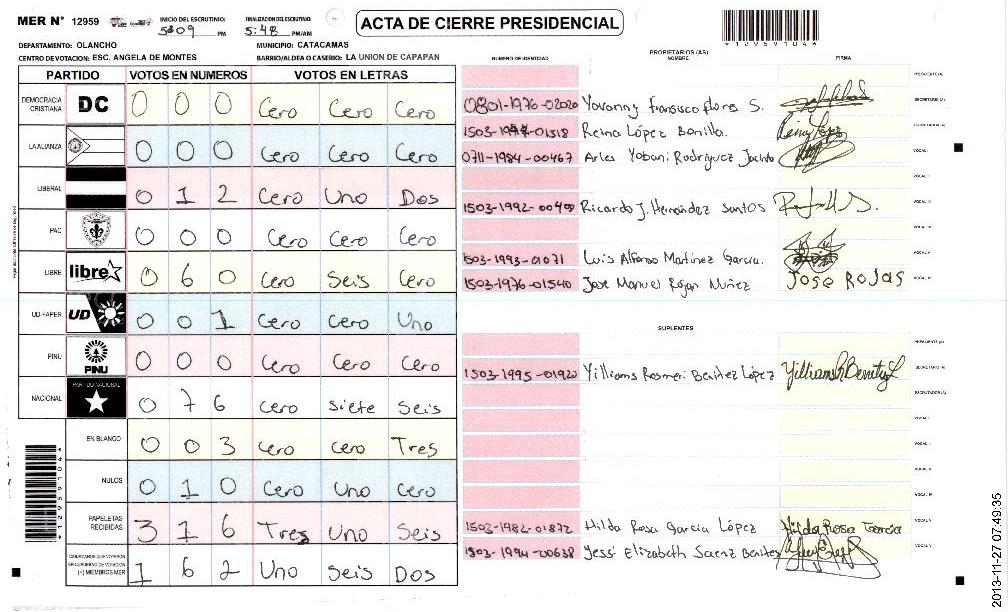 MER N° 12959 INICIO DEL ESCRUTINIO: 5:09 PM FINALIZACION DEL ESCRUTINIO: 5:48 PM/AM
ACTA DE CIERRE PRESIDENCIAL
*12959104*
DEPARTAMENTO: OLANCHO MUNICIPIO: CATACAMAS
CENTRO DE VOTACION: ESC. ANGELA DE MONTES BARRIO/ALDEA O CASERIO: LA UNION DE CAPAPAN
PARTIDO VOTOS EN NUMEROS VOTOS EN LETRAS
DEMOCRACIA CRISTIANA DC 0 0 0 Cero Cero Cero
LA ALIANZA 0 0 0 Cero Cero Cero
LIBERAL 0 1 2 Cero Uno Dos
PAC 0 0 0 Cero Cero Cero
LIBRE libre 0 6 0 Cero Seis Cero
UD-FAPER UD 0 0 1 Cero Cero Uno
PINU PINU 0 0 0 Cero Cero Cero
NACIONAL PARTIDO NACIONAL 0 7 6 Cero Siete Seis
EN BLANCO 0 0 3 Cero Cero Tres
NULOS 0 1 0 Cero Uno Cero
PAPELETAS RECIBIDAS 3 1 6 Tres Uno Seis
CIUDADANOS QUE VOTARON EN CUADERNO DE VOTACION (+) MIEMBROS MER 1 6 2 Uno Seis Dos
*12959104*
NUMERO DE IDENTIDAD PROPIETARIOS (AS) NOMBRE FIRMA
PRESIDENTE (A)
0801-1976-02020 Yovanny Francisco flores S. SECRETARIO (A)
Reina López Bonilla. Reina López ESCRUTADOR (A)
0711-1984-00467 Arles Yobani Rodriguez Jacinto VOCAL I
VOCAL II
Ricardo J. Hernández Santos VOCAL III
1503-1993-01071 Luis Alfonso Martinez Garcia.
1503-1976-01540 Jose Manuel Rojas Nuñez Jose Rojas
SUPLENTES
PRESIDENTE (A)
1503-1995-01920 Yilliams Rosmeri Benitez López SECRETARIO (A)
ESCRUTADOR (A)
VOCAL I
VOCAL II
VOCAL III
VOCAL IV
1503-1982-01872 Hilda Rosa Garcia López Hilda Rosa Garcia VOCAL V
1503-1994-00638 Jessi Elizabeth Saenz Benites
2013-11-27 07:49:35